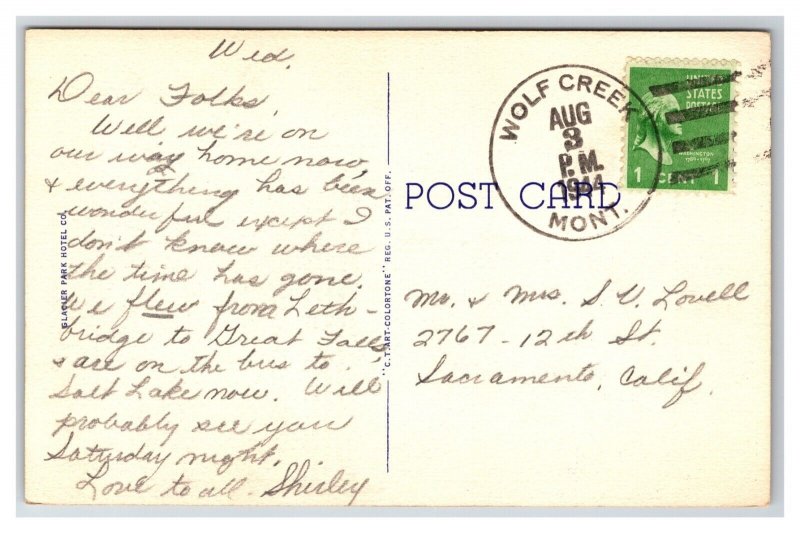 Wed.
Dear Folks,
Well we're on
our way home now,
& everything has been
wonderful except I
don't know where
the time has gone.
We flew from Leth-
bridge to Great Falls
& are on the bus to
Salt Lake now. Will
probably see you
Saturday night.
Love to all. Shirley
GLACIER PARK HOTEL CO.
"C.T. ART-COLORTONE" REG. U.S. PAT. OFF.
POST CARD
WOLF CREEK
AUG
3
P.M.
1944
MONT.
UNITED
STATES
POSTAGE
WASHINGTON
1 CENT 1
Mr. & Mrs. S. V. Lovell
2767 - 12th St.
Sacramento, Calif.